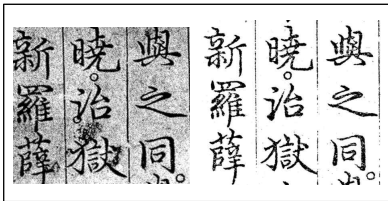 與之同。
曉。治獄
新羅薛
與之同。
曉。治獄
新羅薛